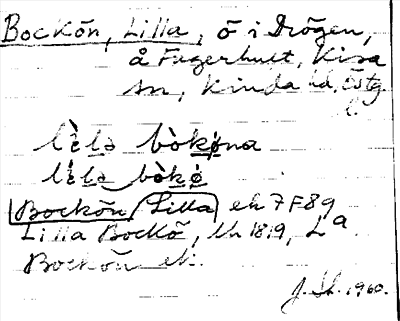 Bockön, Lilla, ö i Drögen,
å Fugerhult, Kisa
sn, Kinda hd, Östg.
l.
lèlə bòkøna
lélə bòkø
Bockön, Lilla ek 7F8g
Lilla Bockö, lh 1819, L a
Bockön ek.
1960.